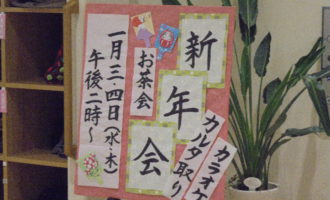 新年会
カラオケ
カルタ取り
お茶会
一月三・四日（水・木）
午後二時〜